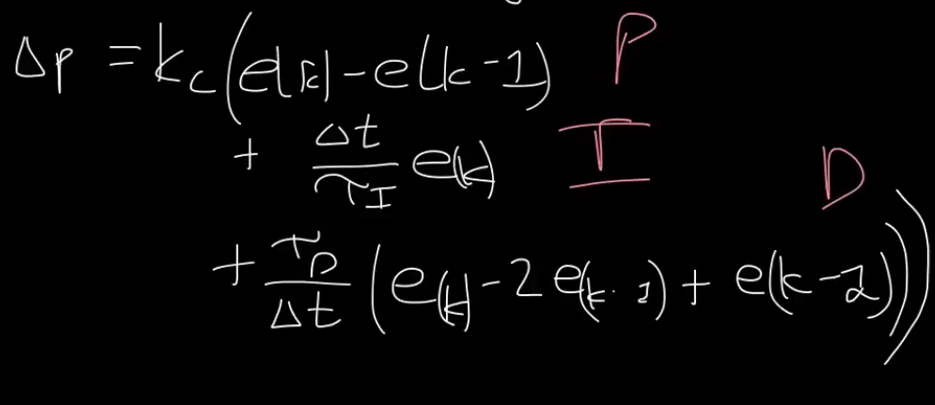 Δp = Kc(e(k) - e(k-1) P
+ Δt/τI e(k) I
D
+ τD/Δt (e(k) - 2e(k-1) + e(k-2)))